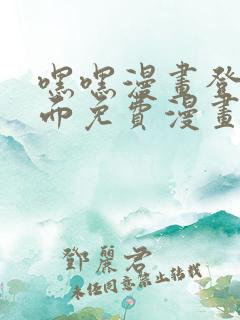 嘿嘿漫畫登
面免費漫畫
鄧麗君
未经同意禁止转载